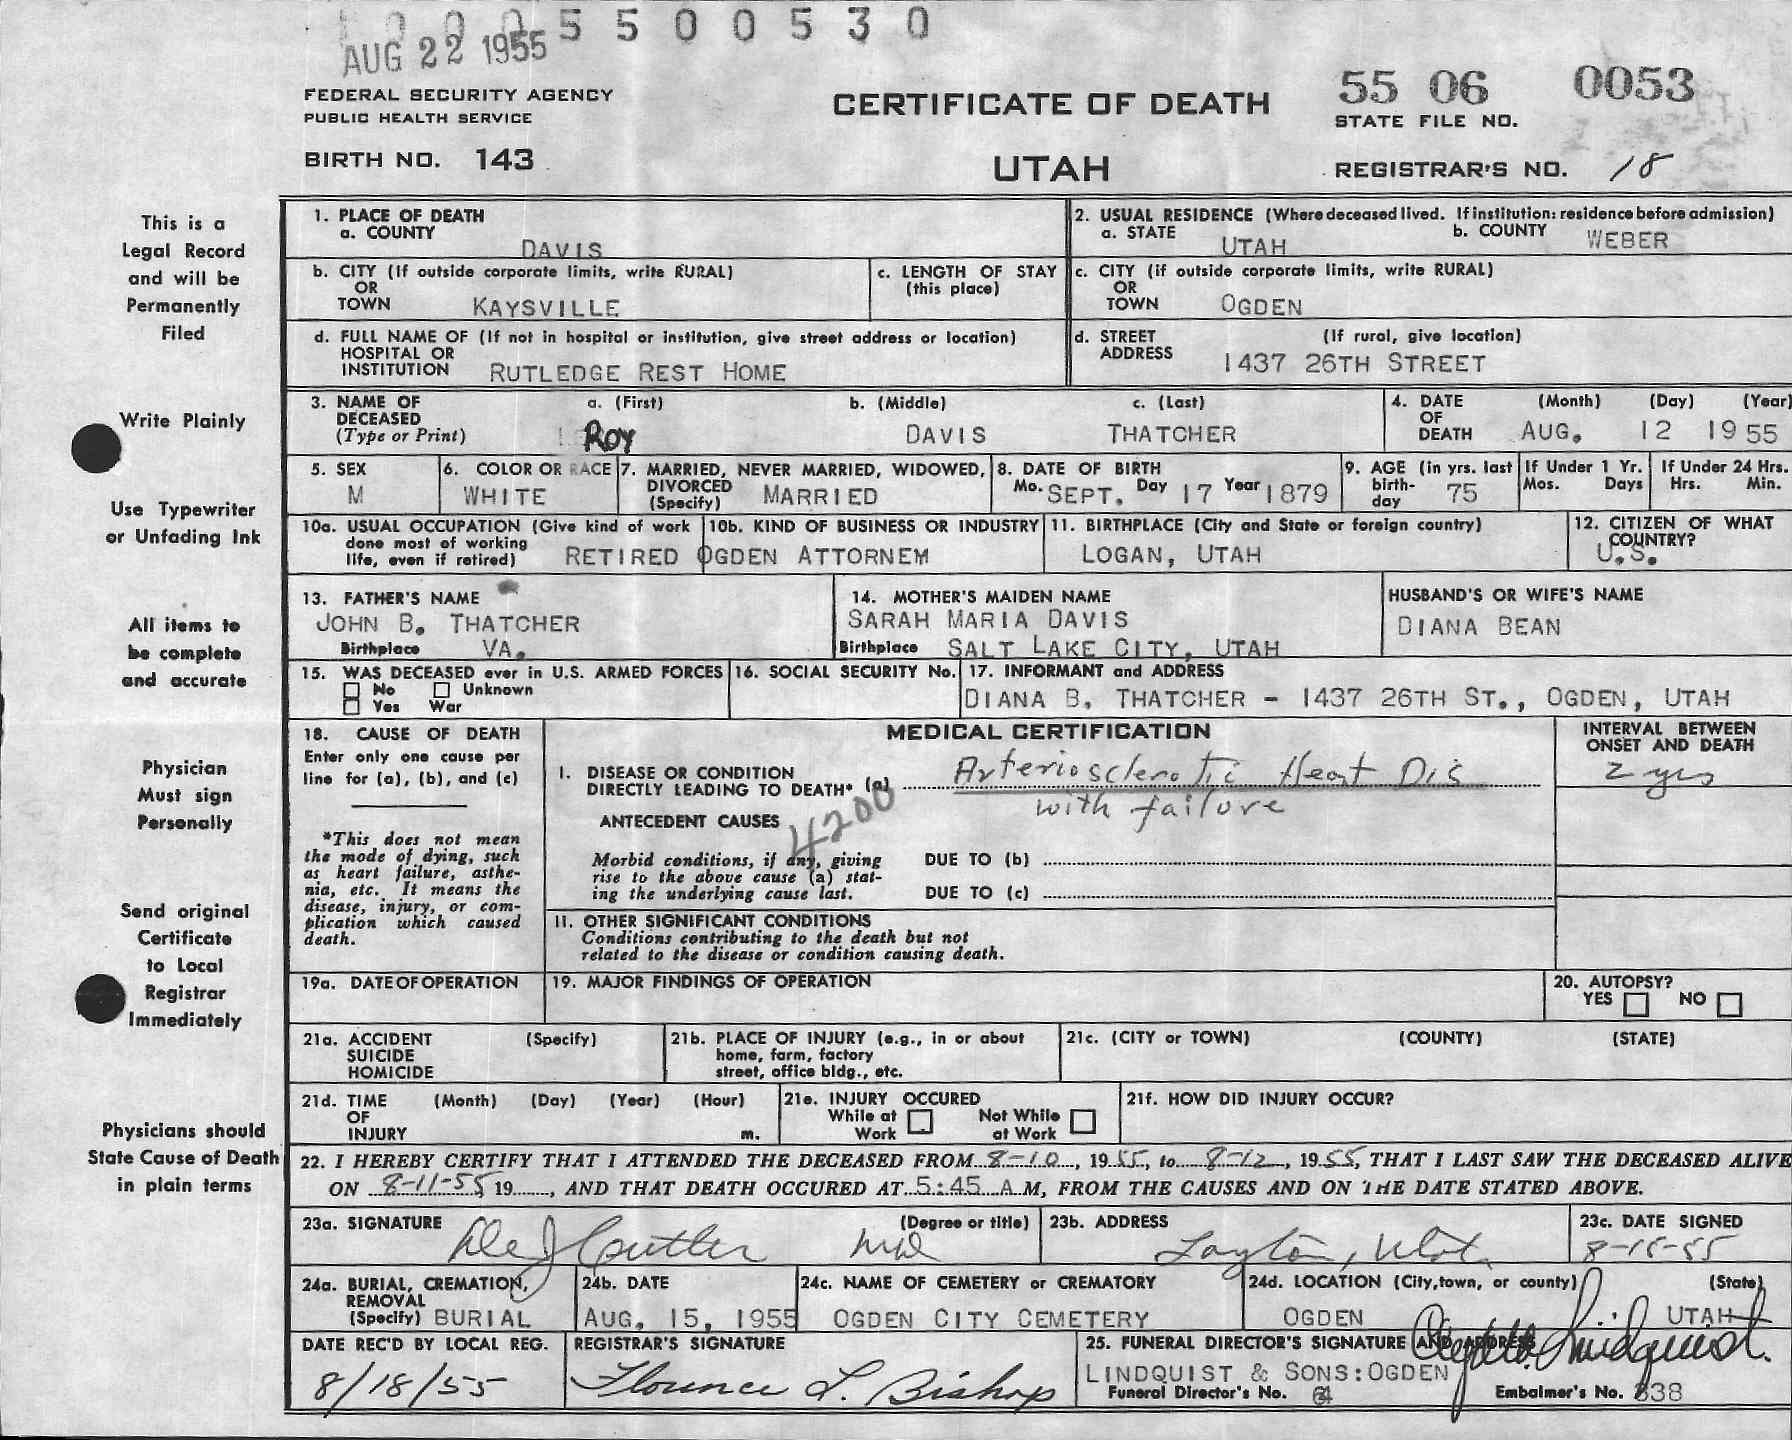 0 0 0 5 5 0 0 5 3 0
AUG 22 1955
FEDERAL SECURITY AGENCY
PUBLIC HEALTH SERVICE
BIRTH NO. 143
CERTIFICATE OF DEATH
UTAH
55 06 0053
STATE FILE NO.
REGISTRAR'S NO. 18
This is a
Legal Record
and will be
Permanently
Filed
Write Plainly
Use Typewriter
or Unfading Ink
All items to
be complete
and accurate
Physician
Must sign
Personally
Send original
Certificate
to Local
Registrar
Immediately
Physicians should
State Cause of Death
in plain terms
1. PLACE OF DEATH
a. COUNTY
DAVIS
2. USUAL RESIDENCE (Where deceased lived. If institution: residence before admission)
a. STATE UTAH b. COUNTY WEBER
b. CITY (If outside corporate limits, write RURAL)
OR
TOWN KAYSVILLE
c. LENGTH OF STAY
(this place)
c. CITY (if outside corporate limits, write RURAL)
OR
TOWN OGDEN
d. FULL NAME OF (If not in hospital or institution, give street address or location)
HOSPITAL OR
INSTITUTION RUTLEDGE REST HOME
d. STREET (If rural, give location)
ADDRESS 1437 26TH STREET
3. NAME OF a. (First) b. (Middle) c. (Last)
DECEASED
(Type or Print) ROY DAVIS THATCHER
4. DATE (Month) (Day) (Year)
OF
DEATH AUG. 12 1955
5. SEX
M
6. COLOR OR RACE
WHITE
7. MARRIED, NEVER MARRIED, WIDOWED,
DIVORCED
(Specify) MARRIED
8. DATE OF BIRTH
Mo. SEPT. Day 17 Year 1879
9. AGE (in yrs. last
birth-
day 75
If Under 1 Yr.
Mos. Days
If Under 24 Hrs.
Hrs. Min.
10a. USUAL OCCUPATION (Give kind of work
done most of working
life, even if retired) RETIRED
10b. KIND OF BUSINESS OR INDUSTRY
OGDEN ATTORNEM
11. BIRTHPLACE (City and State or foreign country)
LOGAN, UTAH
12. CITIZEN OF WHAT
COUNTRY?
U.S.
13. FATHER'S NAME
JOHN B. THATCHER
Birthplace VA.
14. MOTHER'S MAIDEN NAME
SARAH MARIA DAVIS
Birthplace SALT LAKE CITY, UTAH
HUSBAND'S OR WIFE'S NAME
DIANA BEAN
15. WAS DECEASED ever in U.S. ARMED FORCES
No Unknown
Yes War
16. SOCIAL SECURITY No.
17. INFORMANT and ADDRESS
DIANA B. THATCHER - 1437 26TH ST., OGDEN, UTAH
18. CAUSE OF DEATH
Enter only one cause per
line for (a), (b), and (c)
*This does not mean
the mode of dying, such
as heart failure, asthe-
nia, etc. It means the
disease, injury, or com-
plication which caused
death.
MEDICAL CERTIFICATION
I. DISEASE OR CONDITION
DIRECTLY LEADING TO DEATH* (a) Arteriosclerotic Heart Dis
with failure
4200
ANTECEDENT CAUSES
Morbid conditions, if any, giving
rise to the above cause (a) stat-
ing the underlying cause last.
DUE TO (b)
DUE TO (c)
II. OTHER SIGNIFICANT CONDITIONS
Conditions contributing to the death but not
related to the disease or condition causing death.
INTERVAL BETWEEN
ONSET AND DEATH
2 yrs
19a. DATE OF OPERATION
19. MAJOR FINDINGS OF OPERATION
20. AUTOPSY?
YES NO
21a. ACCIDENT (Specify)
SUICIDE
HOMICIDE
21b. PLACE OF INJURY (e.g., in or about
home, farm, factory
street, office bldg., etc.
21c. (CITY or TOWN) (COUNTY) (STATE)
21d. TIME (Month) (Day) (Year) (Hour)
OF
INJURY m.
21e. INJURY OCCURED
While at Work Not While at Work
21f. HOW DID INJURY OCCUR?
22. I HEREBY CERTIFY THAT I ATTENDED THE DECEASED FROM 8-10, 1955, to 8-12, 1955, THAT I LAST SAW THE DECEASED ALIVE
ON 8-11-55 19......, AND THAT DEATH OCCURED AT 5:45 A M, FROM THE CAUSES AND ON THE DATE STATED ABOVE.
23a. SIGNATURE (Degree or title)
Cutler MD
23b. ADDRESS
Layton, Utah
23c. DATE SIGNED
8-15-55
24a. BURIAL, CREMATION,
REMOVAL
(Specify) BURIAL
24b. DATE
AUG. 15, 1955
24c. NAME OF CEMETERY or CREMATORY
OGDEN CITY CEMETERY
24d. LOCATION (City, town, or county) (State)
OGDEN UTAH
DATE REC'D BY LOCAL REG.
8/18/55
REGISTRAR'S SIGNATURE
Florence L. Bishop
25. FUNERAL DIRECTOR'S SIGNATURE AND ADDRESS
Lindquist
LINDQUIST & SONS:OGDEN
Funeral Director's No. 64 Embalmer's No. 338